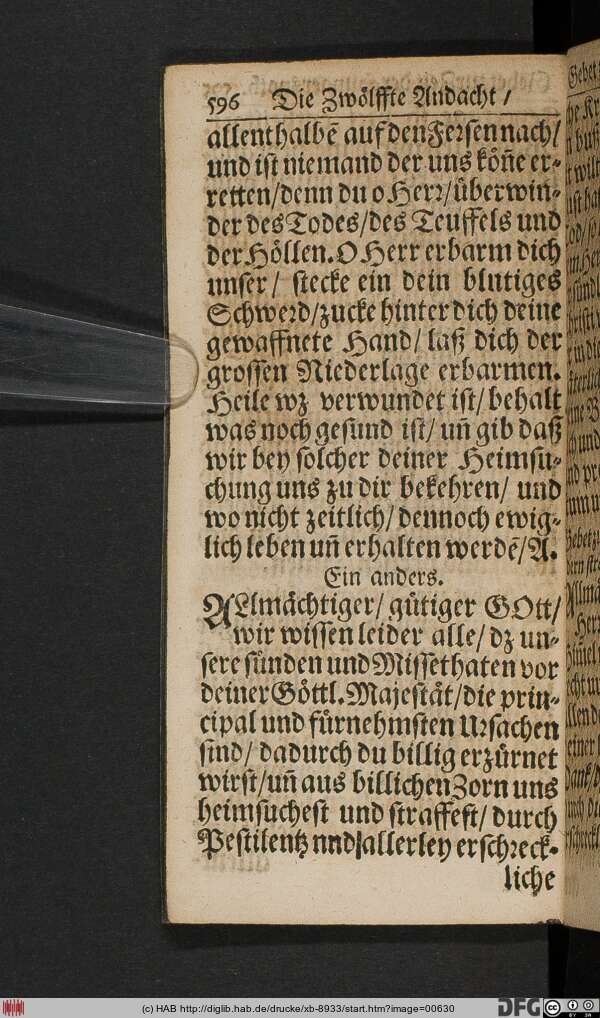 596 Die Zwölffte Andacht /
allenthalbē auf den Fersen nach/
und ist niemand der uns köñe er-
retten/denn du o Herr/überwin-
der des Todes/des Teuffels und
der Höllen. O Herr erbarm dich
unser/ stecke ein dein blutiges
Schwerd/zucke hinter dich deine
gewaffnete Hand/ laß dich der
grossen Niederlage erbarmen.
Heile wz verwundet ist/ behalt
was noch gesund ist/ uñ gib daß
wir bey solcher deiner Heimsu-
chung uns zu dir bekehren/ und
wo nicht zeitlich/ dennoch ewig-
lich leben uñ erhalten werdē/A.
Ein anders.
ALlmächtiger/ gütiger GOtt/
wir wissen leider alle/ dz un-
sere sünden und Missethaten vor
deiner Göttl. Majestät/die prin-
cipal und fürnehmsten Ursachen
sind/ dadurch du billig erzürnet
wirst/uñ aus billichen Zorn uns
heimsuchest und straffest/ durch
Pestilentz nnd allerley erschreck-
liche
(c) HAB http://diglib.hab.de/drucke/xb-8933/start.htm?image=00630
DFG